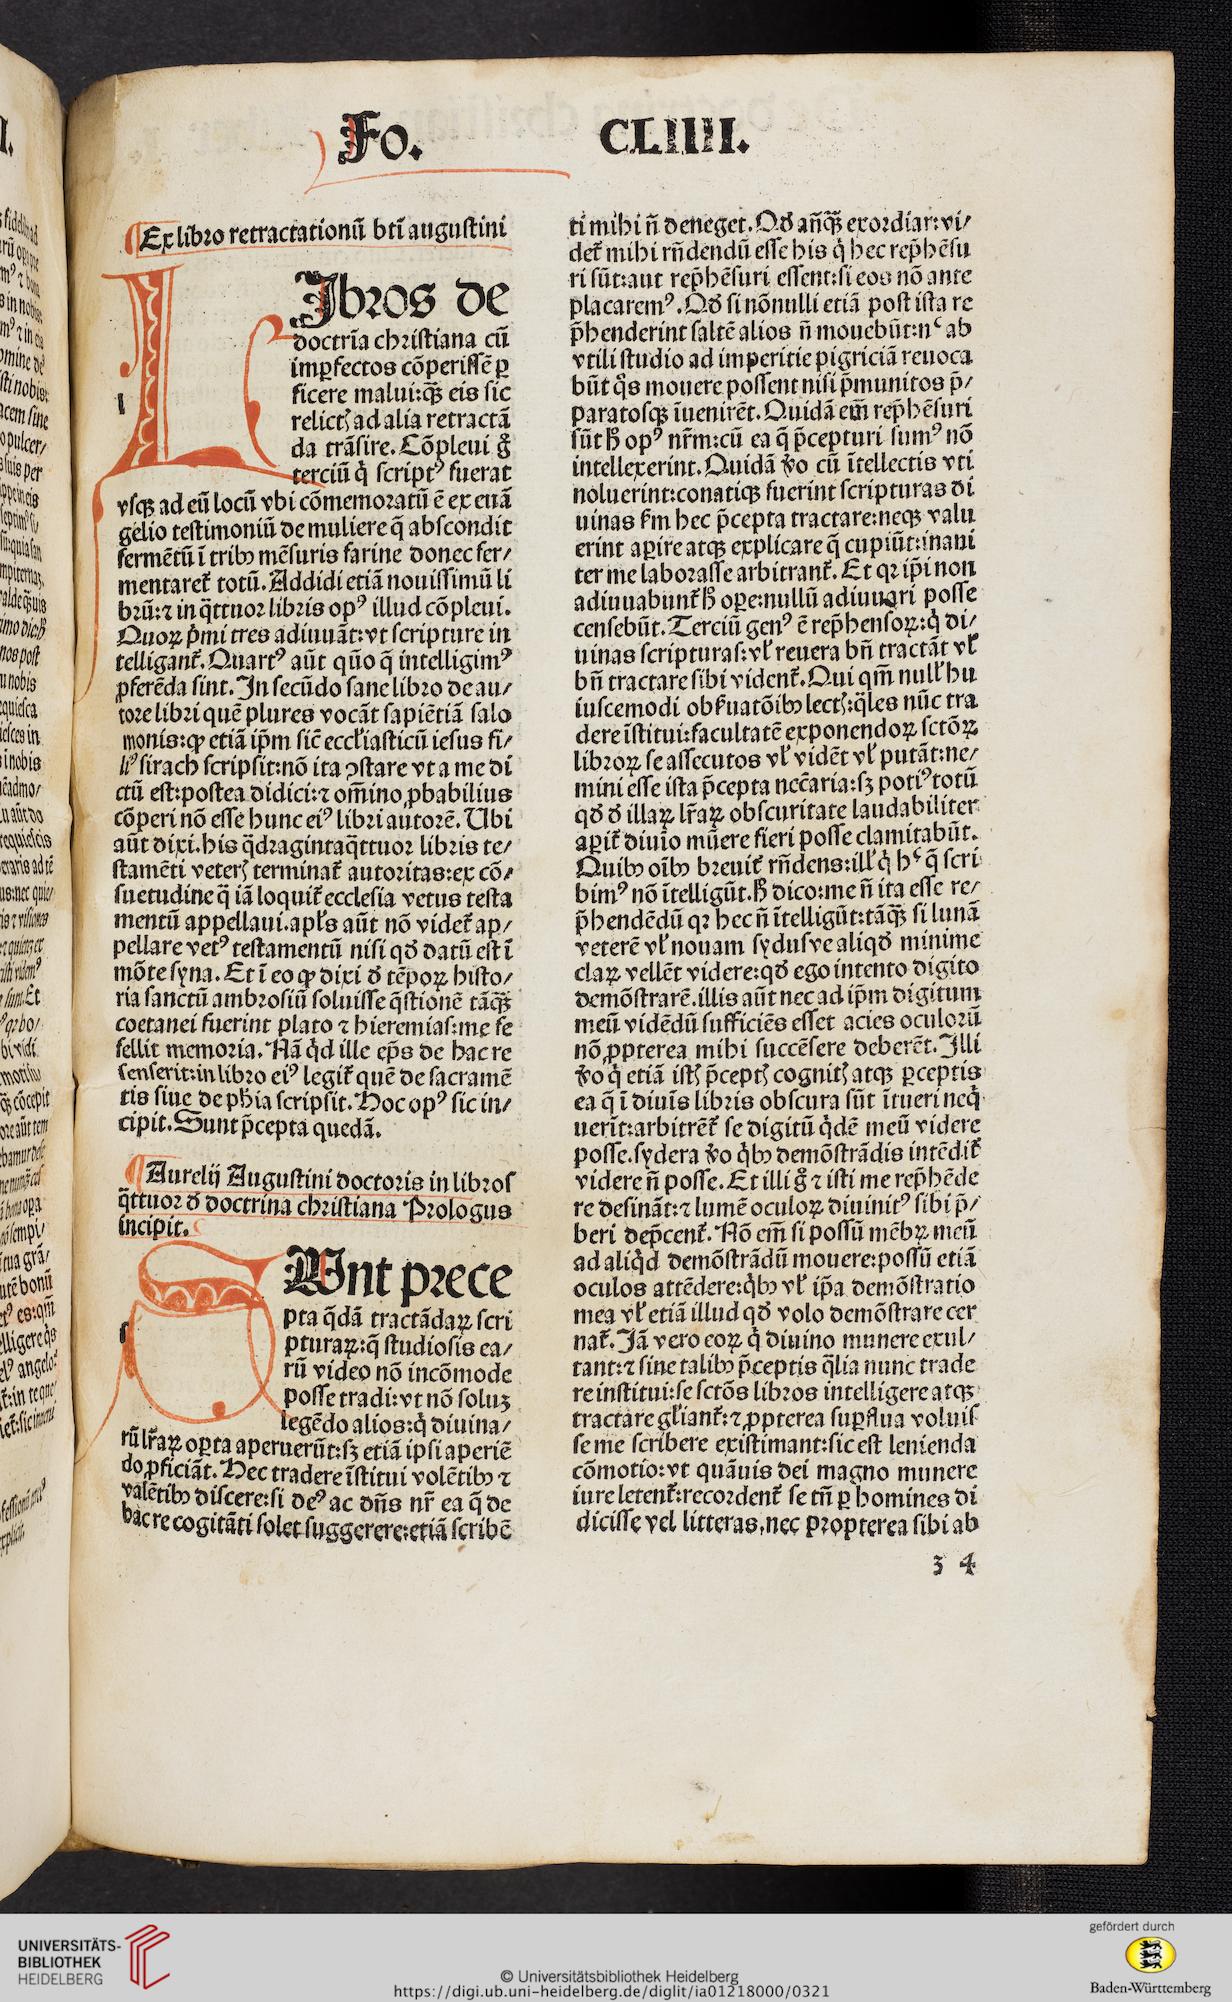 Fo. CLIIII.
Ex libro retractationū bti᷑ augustini
LIbros de
doctrīa christiana cū
imꝑfectos cōperissē ꝑ
ficere malui:qꝫ̄ eis sic
relict͛ ad alia retractā
da trāsire. Cōpleui g̊
terciū q̇ scriptꝰ fuerat
vsqꝫ ad eū locū vbi cōmemoratū ē ex euā
gelio testimoniū de muliere q̄ abscondit
fermētū ī tribꝰ mēsuris farine donec fer/
mentaret᷑ totū. Addidi etiā nouissimū li
brū:⁊ in q̄ttuor libris opꝰ illud cōpleui.
Quoꝝ p̄mi tres adiuuāt:vt scripture in
telligant᷑. Quartꝰ aūt quō q̄ intelligimꝰ
ꝓferēda sint. In secūdo sane libro de au/
tore libri quē plures vocāt sapiētiā salo
monis:ꝙ etiā ip̄m sic̄ eccl̓iasticū iesus fi/
liꝰ sirach scripsit:nō ita ꝯstare vt a me di
ctū est:postea didici:⁊ om̄ino ꝓbabilius
cōperi nō esse hunc eiꝰ libri autorē. Ubi
aūt dixi. his q̄dragintaq̄ttuor libris te/
stamēti veter͛ terminat᷑ autoritas:ex cō/
suetudine q̄ iā loquit᷑ ecclesia vetus testa
mentū appellaui. apl̓s aūt nō videt᷑ ap/
pellare vetꝰ testamentū nisi qđ datū est ī
mōte syna. Et ī eo ꝙ dixi đ tēpoꝝ histo/
ria sanctū ambrosiū soluisse q̄stionē tāqꝫ̄
coetanei fuerint plato ⁊ hieremias:me fe
fellit memoria. Nā q̇d ille ep̄s de hac re
senserit:in libro eiꝰ legit᷑ quē de sacramē
tis siue de ph̓ia scripsit. Hoc opꝰ sic in/
cipit. Sunt p̄cepta quedā.
Aurelij Augustini doctoris in libros
q̄ttuor đ doctrina christiana Prologus
incipit.
SUnt prece
pta q̄dā tractādaꝝ scri
pturaꝝ:q̄ studiosis ea/
rū video nō incōmode
posse tradi:vt nō soluꝫ
legēdo alios:q̇ diuina/
rū lr̄aꝝ oꝑta aperuerūt:sꝫ etiā ipsi aperiē
do ꝓficiāt. Hec tradere īstitui volētibꝰ ⁊
valētibꝰ discere:si deꝰ ac dn̄s nr̄ ea q̄ de
hac re cogitāti solet suggerere:etiā scribē
ti mihi n̄ deneget. Qđ an̄qꝫ̄ exordiar:vi/
det᷑ mihi rn̄dendū esse his q̇ hec rep̄hēsu
ri sūt:aut rep̄hēsuri essent:si eos nō ante
placaremꝰ. Qđ si nōnulli etiā post ista re
p̄henderint saltē alios n̄ mouebūt:nᶜ ab
vtili studio ad imperitie pigriciā reuoca
būt q̇s mouere possent nisi p̄munitos p̄/
paratosqꝫ īuenirēt. Quidā em̄ rep̄hēsuri
sūt ħ opꝰ nr̄m:cū ea q̄ p̄cepturi sumꝰ nō
intellexerint. Quidā v̊o cū ītellectis vti
noluerint:conatiqꝫ fuerint scripturas di
uinas s̄m hec p̄cepta tractare:neqꝫ valu
erint aꝑire atqꝫ explicare q̄ cupiūt:inani
ter me laborasse arbitrant᷑. Et qꝛ ip̄i non
adiuuabunt᷑ ħ oꝑe:nullū adiuuari posse
censebūt. Terciū genꝰ ē rep̄hensoꝝ:q̇ di/
uinas scripturas:vl̓ reuera bn̄ tractāt vl̓
bn̄ tractare sibi vident᷑. Qui qm̄ null̓ hu
iuscemodi obẜuatōibꝰ lect͛:q̄les nūc tra
dere īstitui:facultatē exponendoꝝ sctōꝝ
libroꝝ se assecutos vl̓ vidēt vl̓ putāt:ne/
mini esse ista p̄cepta necc̄aria:sꝫ potiꝰ totū
qđ đ illaꝝ lr̄aꝝ obscuritate laudabiliter
aꝑit᷑ diuīo mūere fieri posse clamitabūt.
Quibꝰ oībꝰ breuit᷑ rn̄dens:ill̓ q̇ hᶜ q̄ scri
bimꝰ nō ītelligūt.ħ dico:me n̄ ita esse re/
p̄hendēdū qꝛ hec n̄ ītelligūt:tāqꝫ̄ si lunā
veterē vl̓ nouam sydusve aliqđ minime
claꝝ vellēt videre:qđ ego intento digito
demōstrarē. illis aūt nec ad ip̄m digitum
meū vidēdū sufficiēs esset acies oculorū
nō ꝓpterea mihi succēsere deberēt. Illi
v̊o q̇ etiā ist͛ p̄cept͛ cognit͛ atqꝫ ꝑceptis
ea q̄ ī diuīs libris obscura sūt ītueri neq̇
uerīt:arbitrēt᷑ se digitū q̇dē meū videre
posse. sydera v̊o q̇bꝰ demōstrādis intēdit᷑
videre n̄ posse. Et illi g̊ ⁊ isti me rep̄hēde
re desināt:⁊ lumē oculoꝝ diuinitꝰ sibi p̄/
beri dep̄cent᷑. Nō em̄ si possū mēbꝝ meū
ad aliq̇d demōstrādū mouere:possū etiā
oculos attēdere:q̇bꝰ vl̓ ip̄a demōstratio
mea vl̓ etiā illud qđ volo demōstrare cer
nat᷑. Iā vero eoꝝ q̇ diuino munere exul/
tant:⁊ sine talibꝰ p̄ceptis q̄lia nunc trade
re institui:se sctōs libros intelligere atqꝫ
tractare gl̓iant᷑:⁊ ꝓpterea suꝑflua voluis
se me scribere existimant:sic est lenienda
cōmotio:vt quāuis dei magno munere
iure letent᷑:recordent᷑ se tn̄ ꝑ homines di
dicisse vel litteras.nec propterea sibi ab
3 4
UNIVERSITÄTS-
BIBLIOTHEK
HEIDELBERG
© Universitätsbibliothek Heidelberg
https://digi.ub.uni-heidelberg.de/diglit/ia01218000/0321
gefördert durch
Baden-Württemberg